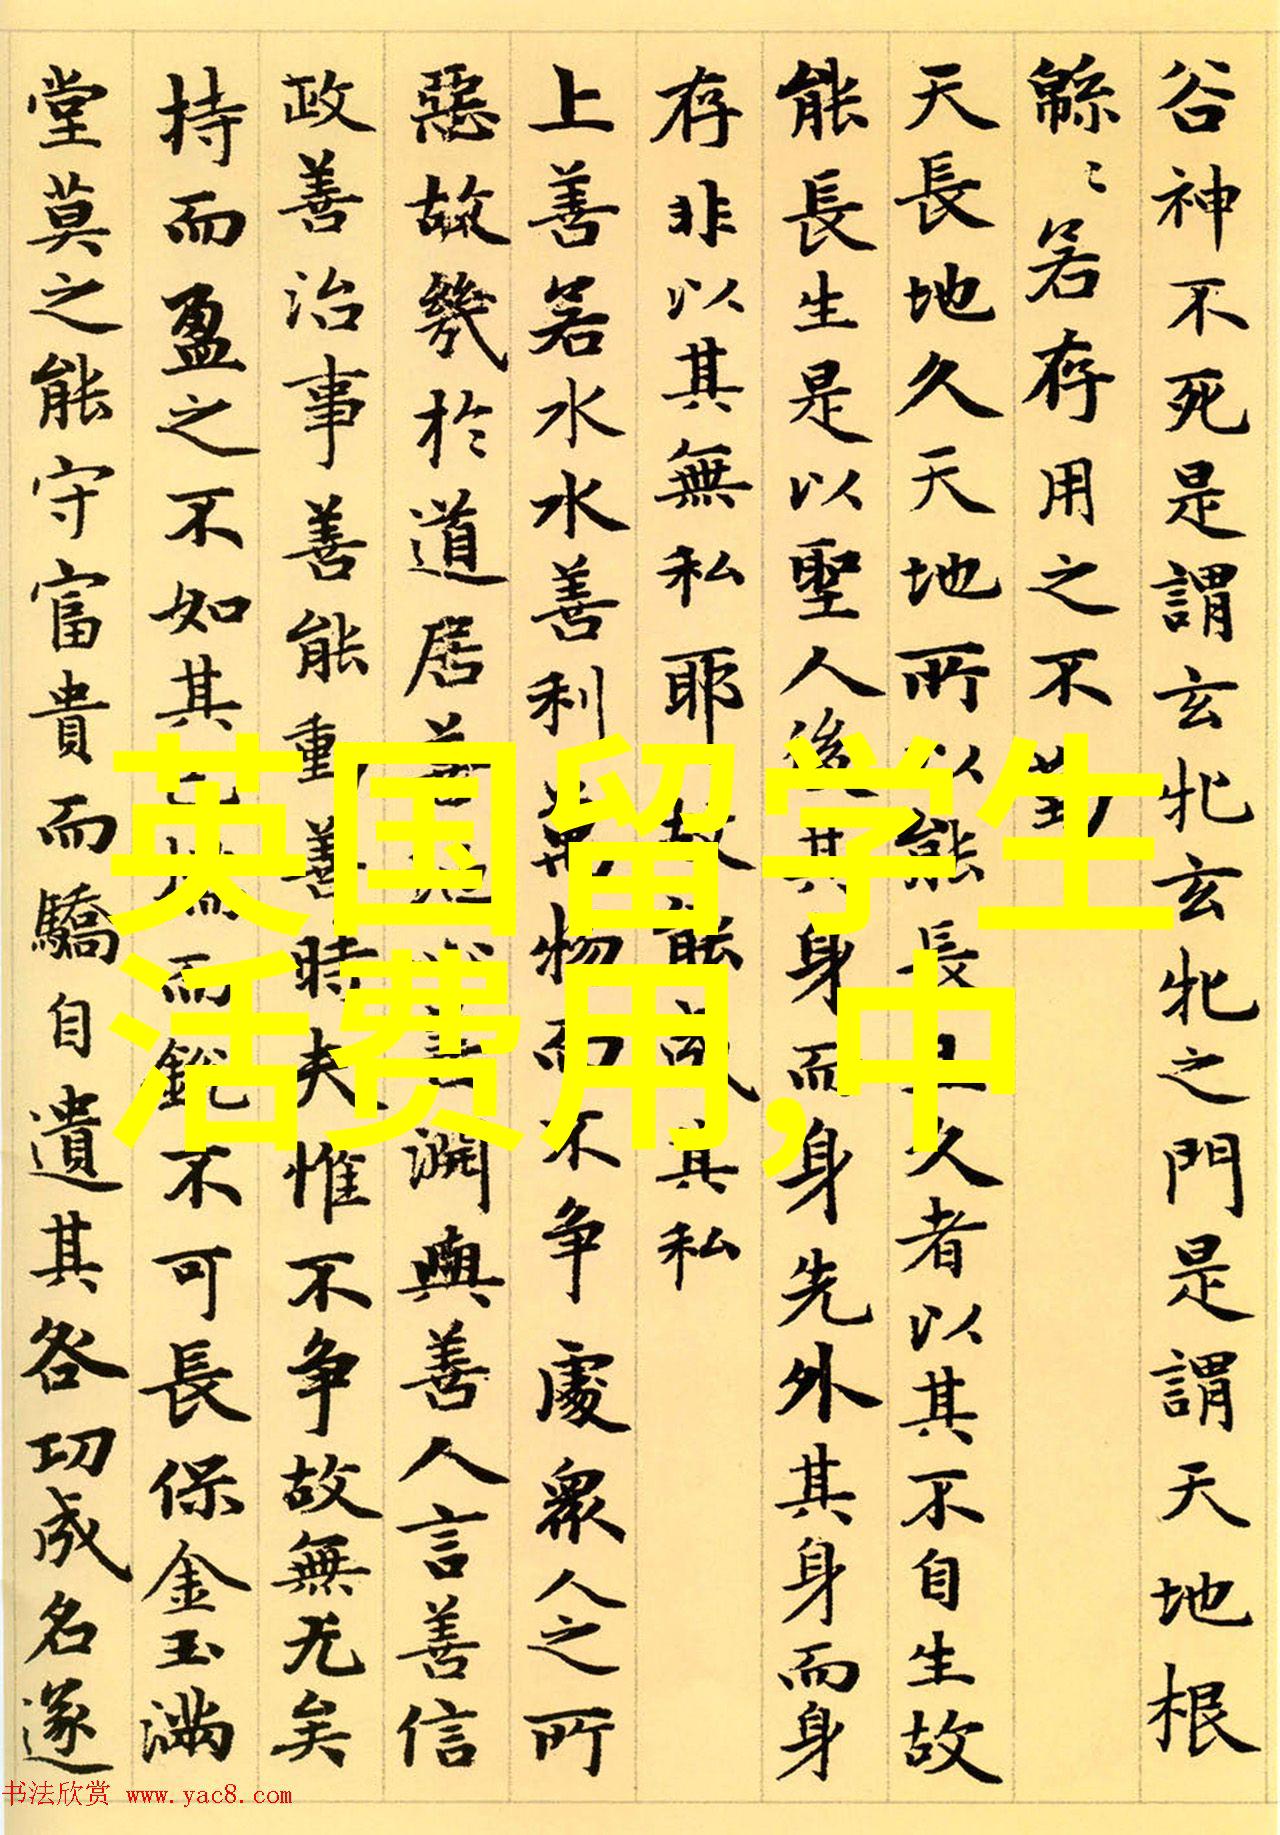 谷神不死是謂玄牝玄牝之門是謂天地根
緜〻若存用之不勤
天長地久天地所以能長且久者以其不自生故
能長生是以聖人後其身而身先外其身而身
存非以其無私耶故能成其私
上善若水水善利萬物而不争處衆人之所
惡故幾於道居善地心善淵與善人言善信
政善治事善能動善時夫惟不争故無尤矣
持而盈之不如其已揣而銳不可長保金玉滿
堂莫之能守富貴而驕自遺其咎功成名遂
英国留学生
活费用,中
书法欣赏 www.yac8.com